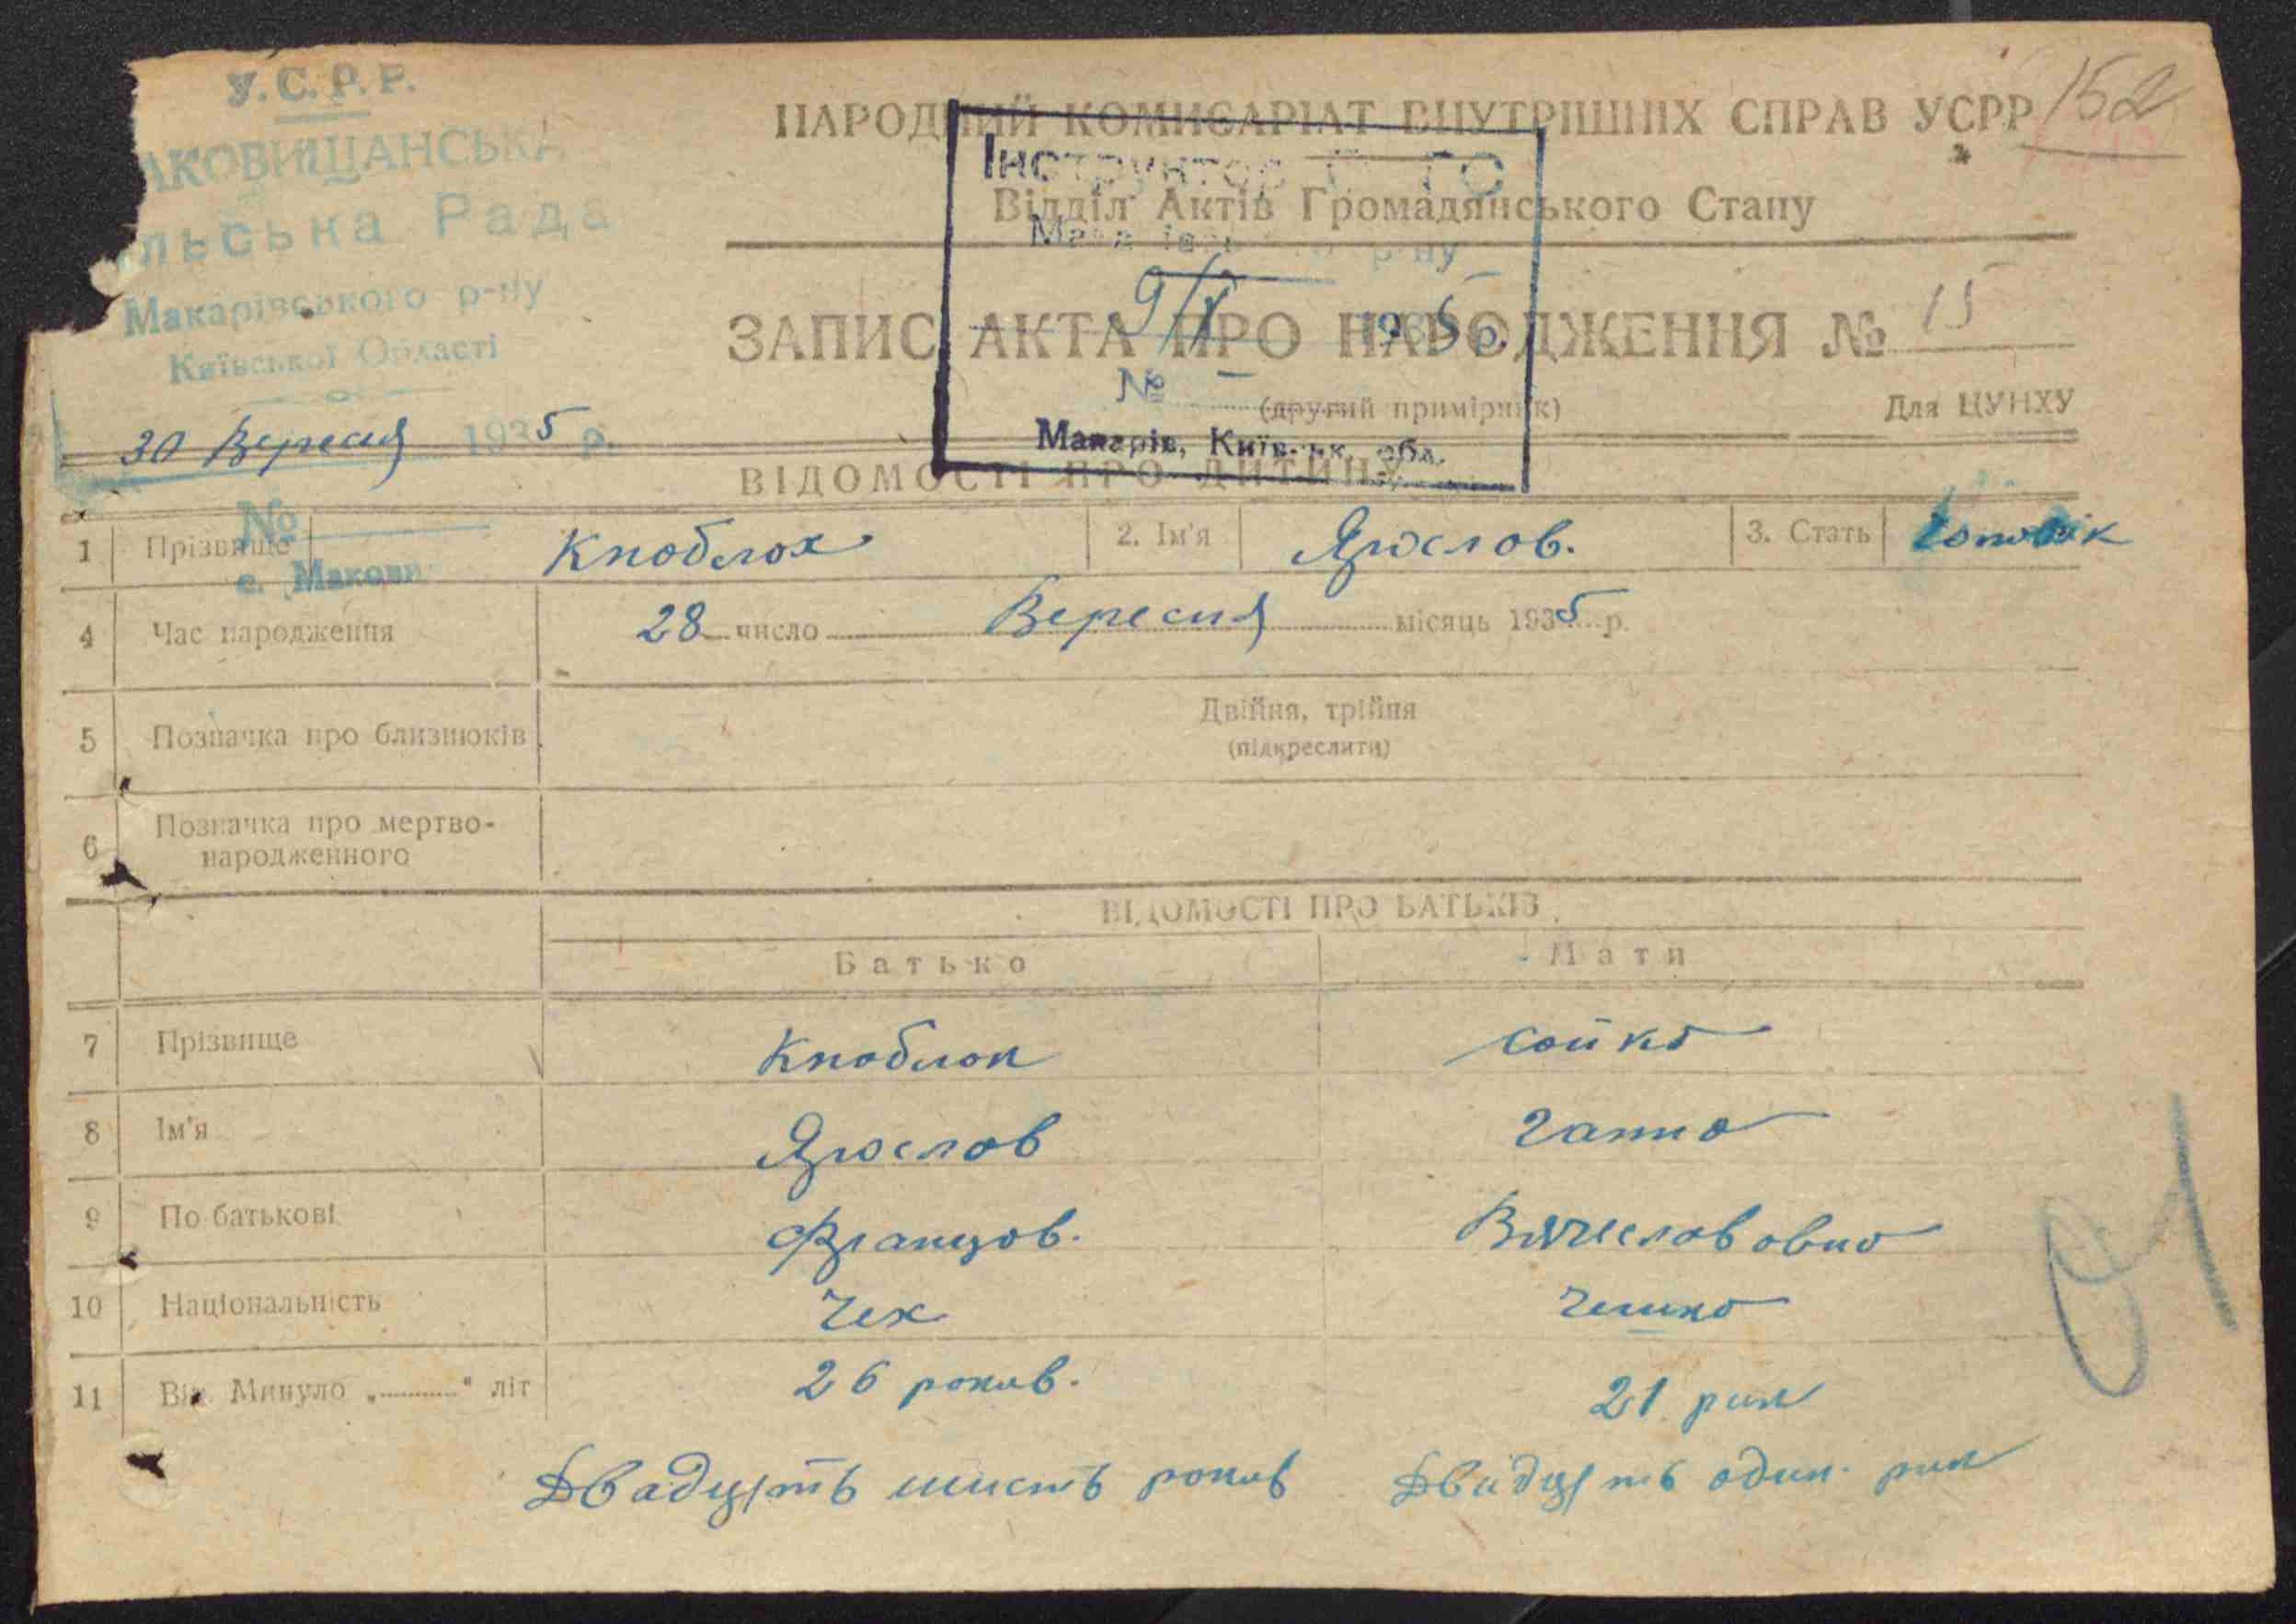 У.С.Р.Р.
АКОВИЩАНСЬКА
льська Рада
Макарівського р-ну
Київської Області
30 Вересня 1935 р.
№
с. Макови
152
НАРОДНИЙ КОМИСАРІАТ ВНУТРІШНІХ СПРАВ УСРР
Відділ Актів Громадянського Стану
Інструктор
р-ну
9/X 1935 р.
№ —
Макарів, Київськ. обл.
ЗАПИС АКТА ПРО НАРОДЖЕННЯ № 15
(другий примірник)
Для ЦУНХУ
ВІДОМОСТІ ПРО ДИТИНУ
1 Прізвище Кноблох 2. Ім'я Ярослов. 3. Стать Чоловік
4 Час народження 28 число Вересня місяць 1935 р.
5 Позначка про близнюків Двійня, трійня
(підкреслити)
6 Позначка про мертво-
народженного
ВІДОМОСТІ ПРО БАТЬКІВ
Батько Мати
7 Прізвище Кноблох Сойко
8 Ім'я Ярослов Ганна
9 По батькові Францов. Вячеслововна
10 Національність Чех Чешка
11 Вік. Минуло „ “ літ 26 років. 21 рик
Двадцять шисть років Двадцять один рик